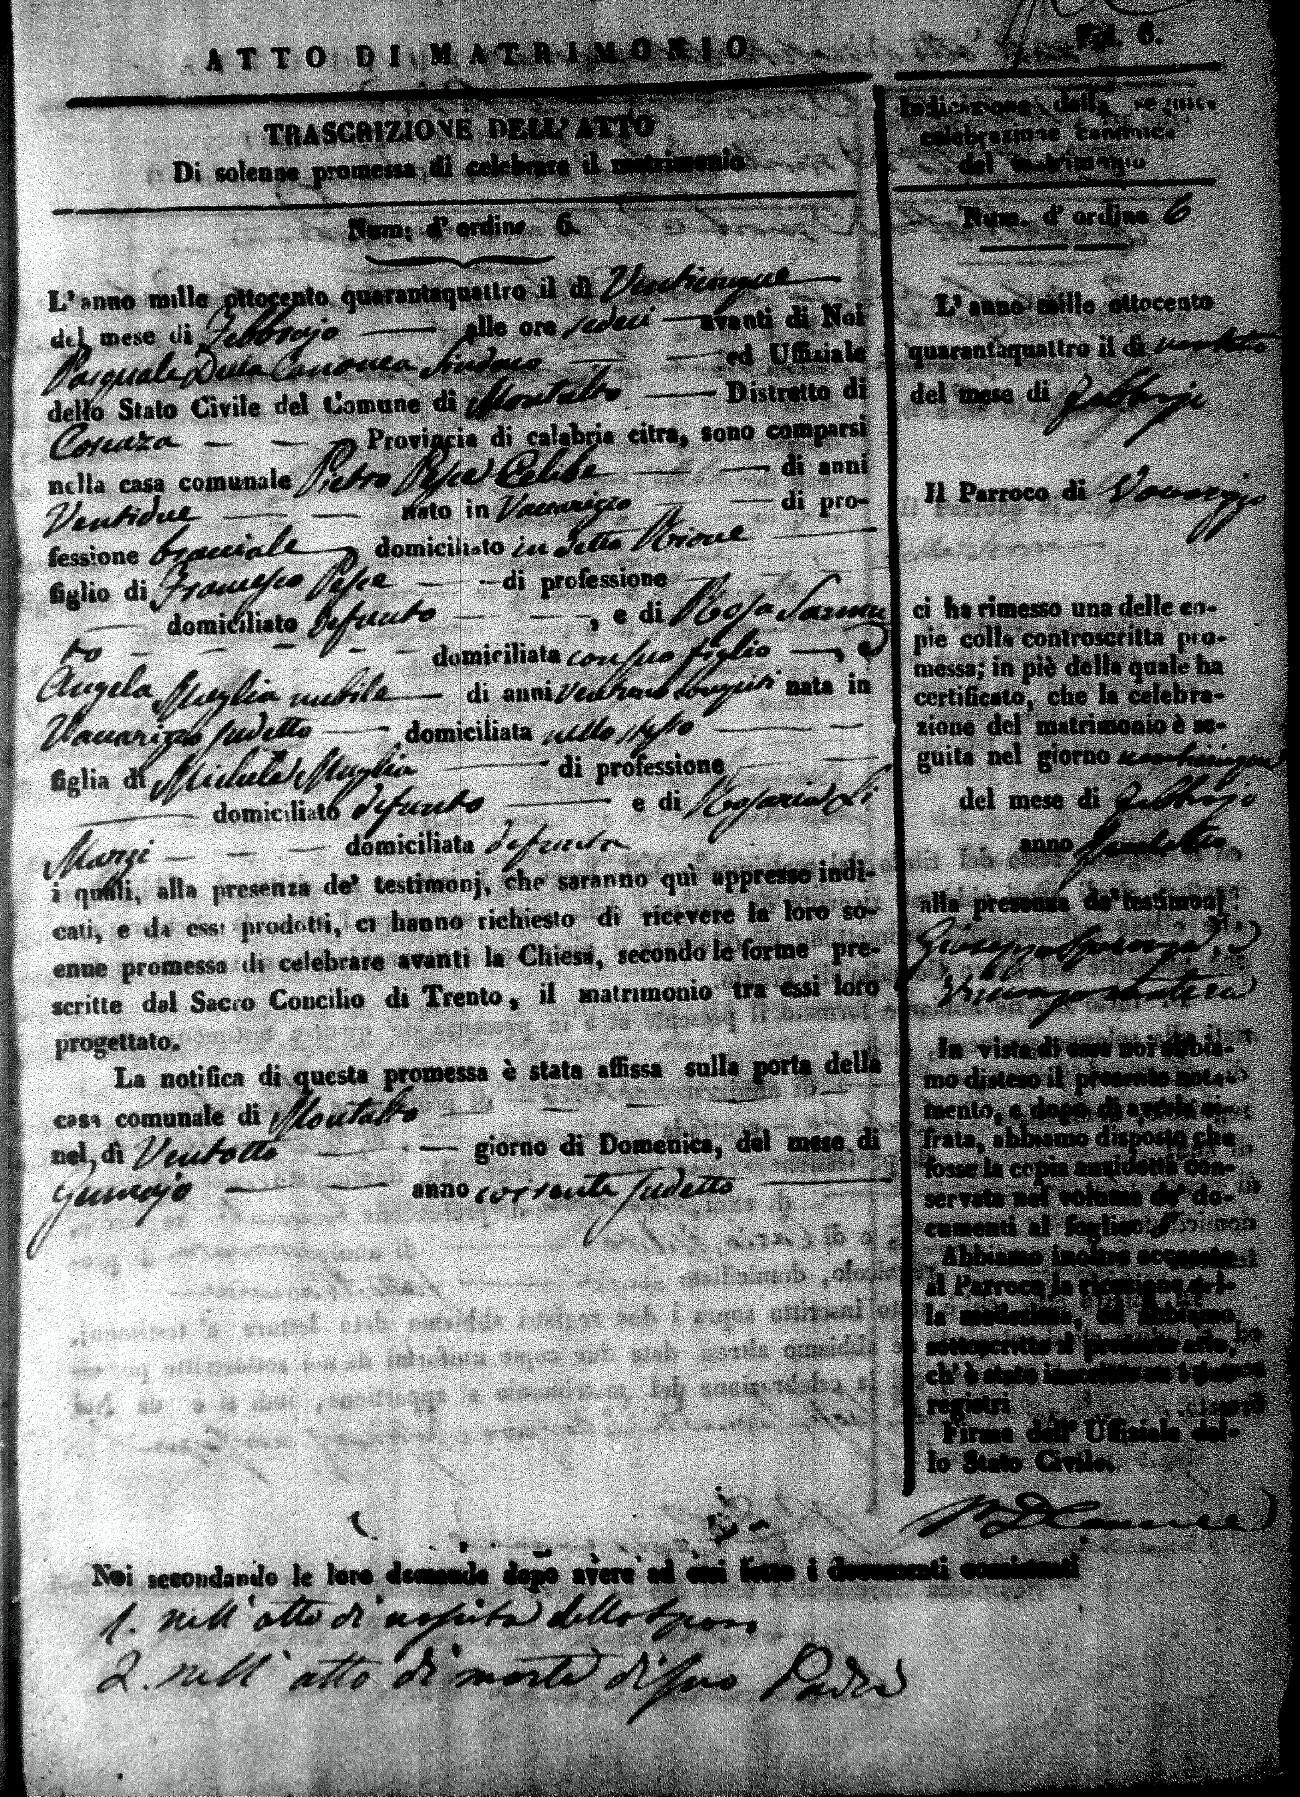 Fol. 6.
ATTO DI MATRIMONIO
TRASCRIZIONE DELL'ATTO
Di solenne promessa di celebrare il matrimonio
Num. d'ordine 6.
L'anno mille ottocento quarantaquattro il dì Venticinque
del mese di Febbrajo alle ore sedeci avanti di Noi
Pasquale Della Cananea Sindaco ed Uffiziale
dello Stato Civile del Comune di Montalto Distretto di
Cosenza Provincia di calabria citra, sono comparsi
nella casa comunale Pietro Pesce Celibe di anni
Ventidue nato in Vaccarizzo di pro-
fessione bracciale domiciliato in detto Rione
figlio di Francesco Pesce di professione
domiciliato defunto , e di Rosa Sarmu
to domiciliata con suo figlio , e
Angela Muglia nubile di anni nata in
Vaccarizzo sudetto domiciliata nello stesso
figlia di Michele Muglia di professione
domiciliato defunto e di Rosaria Li
Marzi domiciliata defunta
i quali, alla presenza de' testimonj, che saranno quì appresso indi-
cati, e da essi prodotti, ci hanno richiesto di ricevere la loro so-
enne promessa di celebrare avanti la Chiesa, secondo le forme pre-
scritte dal Sacro Concilio di Trento, il matrimonio tra essi loro
progettato.
La notifica di questa promessa è stata affissa sulla porta della
casa comunale di Montalto
nel dì Ventotto giorno di Domenica, del mese di
Gennajo anno corrente sudetto
Indicazione della seguita
celebrazione canonica
del matrimonio
Num. d'ordine 6
L'anno mille ottocento
quarantaquattro il dì ventotto
del mese di Febbrajo
Il Parroco di Vaccarizzo
ci ha rimesso una delle co-
pie colla controscritta pro-
messa; in piè della quale ha
certificato, che la celebra-
zione del matrimonio è se-
guita nel giorno venticinque
del mese di Febbrajo
anno Sudetto
alla presenza de' testimonj
Giuseppe Sparanza, e
Vincenzo Matera
In vista di esse noi abbia-
mo disteso il presente nota-
mento, e dopo di averla ci-
frata, abbiamo disposto che
fosse la copia anzidetta con-
servata nel volume de' do-
cumenti al foglio
Abbiamo inoltre accusato
al Parroco la ricezione del-
la medesima, ed abbiamo
sottoscritto il presente atto,
ch' è stato inscritto su i due
registri
Firma dell' Uffiziale del-
lo Stato Civile.
Noi secondando le loro domande dopo avere ad essi letto i documenti consistenti
1. nell' atto di nascita dello sposo
2. nell' atto di morte di suo Padre